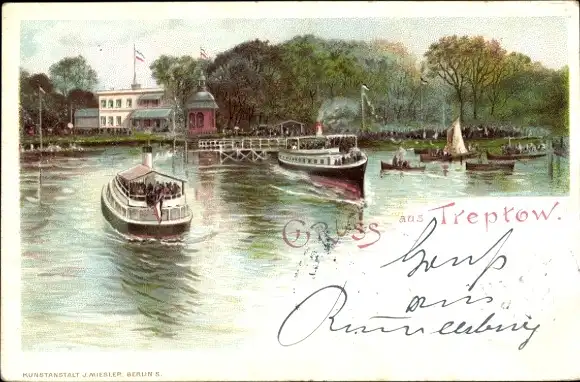 Gruss aus Treptow.
Gruß
aus
Rummelsburg
KUNSTANSTALT J. MIESLER, BERLIN S.